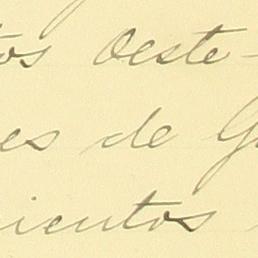 tos Oeste-
es de G
ientos